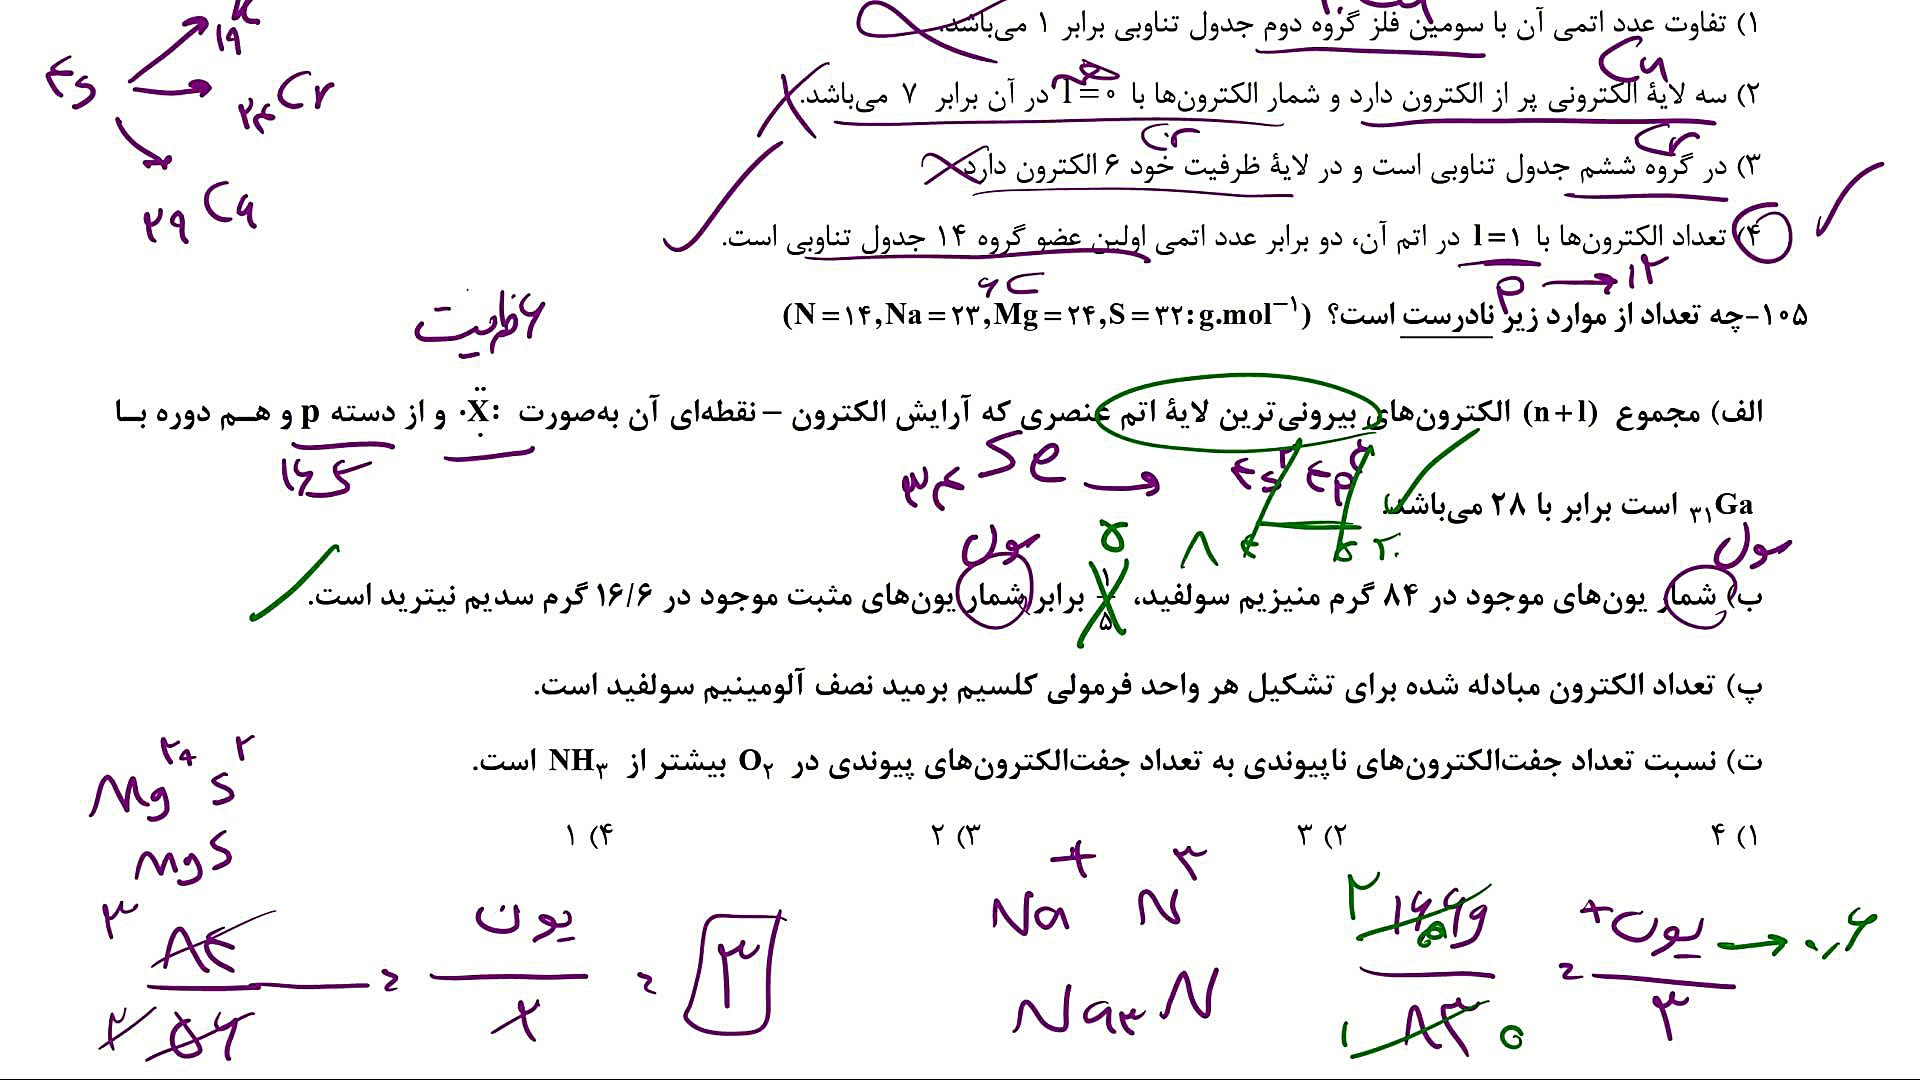 ۱) تفاوت عدد اتمی آن با سومین فلز گروه دوم جدول تناوبی برابر ۱ می‌باشد.
Cu
۲) سه لایهٔ الکترونی پر از الکترون دارد و شمار الکترون‌ها با l=۰ در آن برابر ۷ می‌باشد.
Cr Cr
۳) در گروه ششم جدول تناوبی است و در لایهٔ ظرفیت خود ۶ الکترون دارد.
۴) تعداد الکترون‌ها با l=۱ در اتم آن، دو برابر عدد اتمی اولین عضو گروه ۱۴ جدول تناوبی است.
P → ۱۲
۶C
۴s
۱۹K
۲۴Cr
۲۹Cu
۱۰۵-چه تعداد از موارد زیر نادرست است؟ (N=۱۴,Na=۲۳,Mg=۲۴,S=۳۲:g.mol⁻¹)
۶ ظرفیت
الف) مجموع (n+l) الکترون‌های بیرونی‌ترین لایهٔ اتم عنصری که آرایش الکترون – نقطه‌ای آن به‌صورت :Ẍ· و از دسته p و هـم دوره بـا
۳۴Se → ۴s² ۴p⁴
۱۶گ
۳۱Ga است برابر با ۲۸ می‌باشد.
۸ ۴ ۵ ۲۰
مول مول ۵
ب) شمار یون‌های موجود در ۸۴ گرم منیزیم سولفید، ۱/۵ برابر شمار یون‌های مثبت موجود در ۱۶/۶ گرم سدیم نیترید است.
پ) تعداد الکترون مبادله شده برای تشکیل هر واحد فرمولی کلسیم برمید نصف آلومینیم سولفید است.
ت) نسبت تعداد جفت‌الکترون‌های ناپیوندی به تعداد جفت‌الکترون‌های پیوندی در O۲ بیشتر از NH۳ است.
۱) ۴ ۲) ۳ ۳) ۲ ۴) ۱
Mg²⁺ S²
MgS
۳ ۸۴ / ۲ ۵۶ = یون / ۲ = ۳
Na⁺ N³
Na۳N
۲ ۱۶٫۶g / ۱ ۸۳ = یون+ / ۳ → ۰٫۶